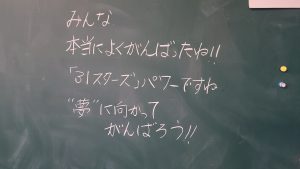 みんな
本当によくがんばったね!!
「31スターズ」パワーですね
"夢"に向かって
がんばろう!!